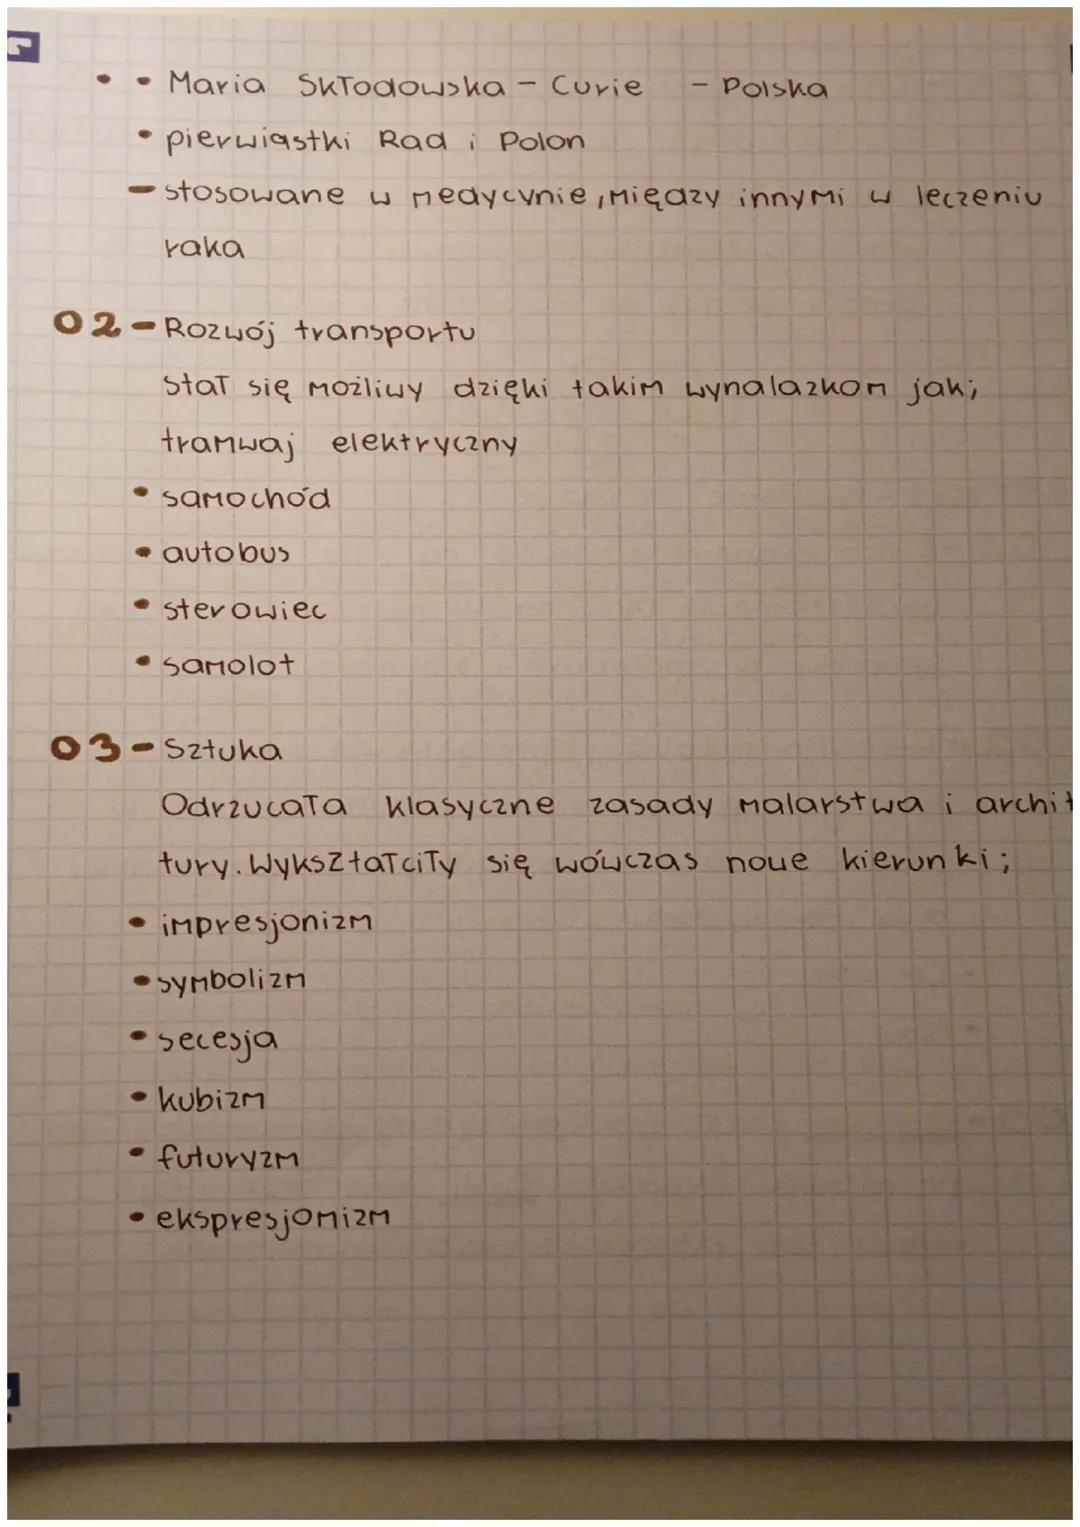 • • Maria Skłodowska - Curie - Polska
• pierwiastki Rad i Polon
- stosowane w medycynie, między innymi w leczeniu
raka
02 - Rozwój transportu
stał się możliwy dzięki takim wynalazkom jak;
tramwaj elektryczny
• samochód
• autobus
• sterowiec
• samolot
03 - Sztuka
Odrzucała klasyczne zasady malarstwa i archit
tury. Wykształciły się wówczas nowe kierunki;
• impresjonizm
• symbolizm
• secesja
• kubizm
• futuryzm
• ekspresjonizm